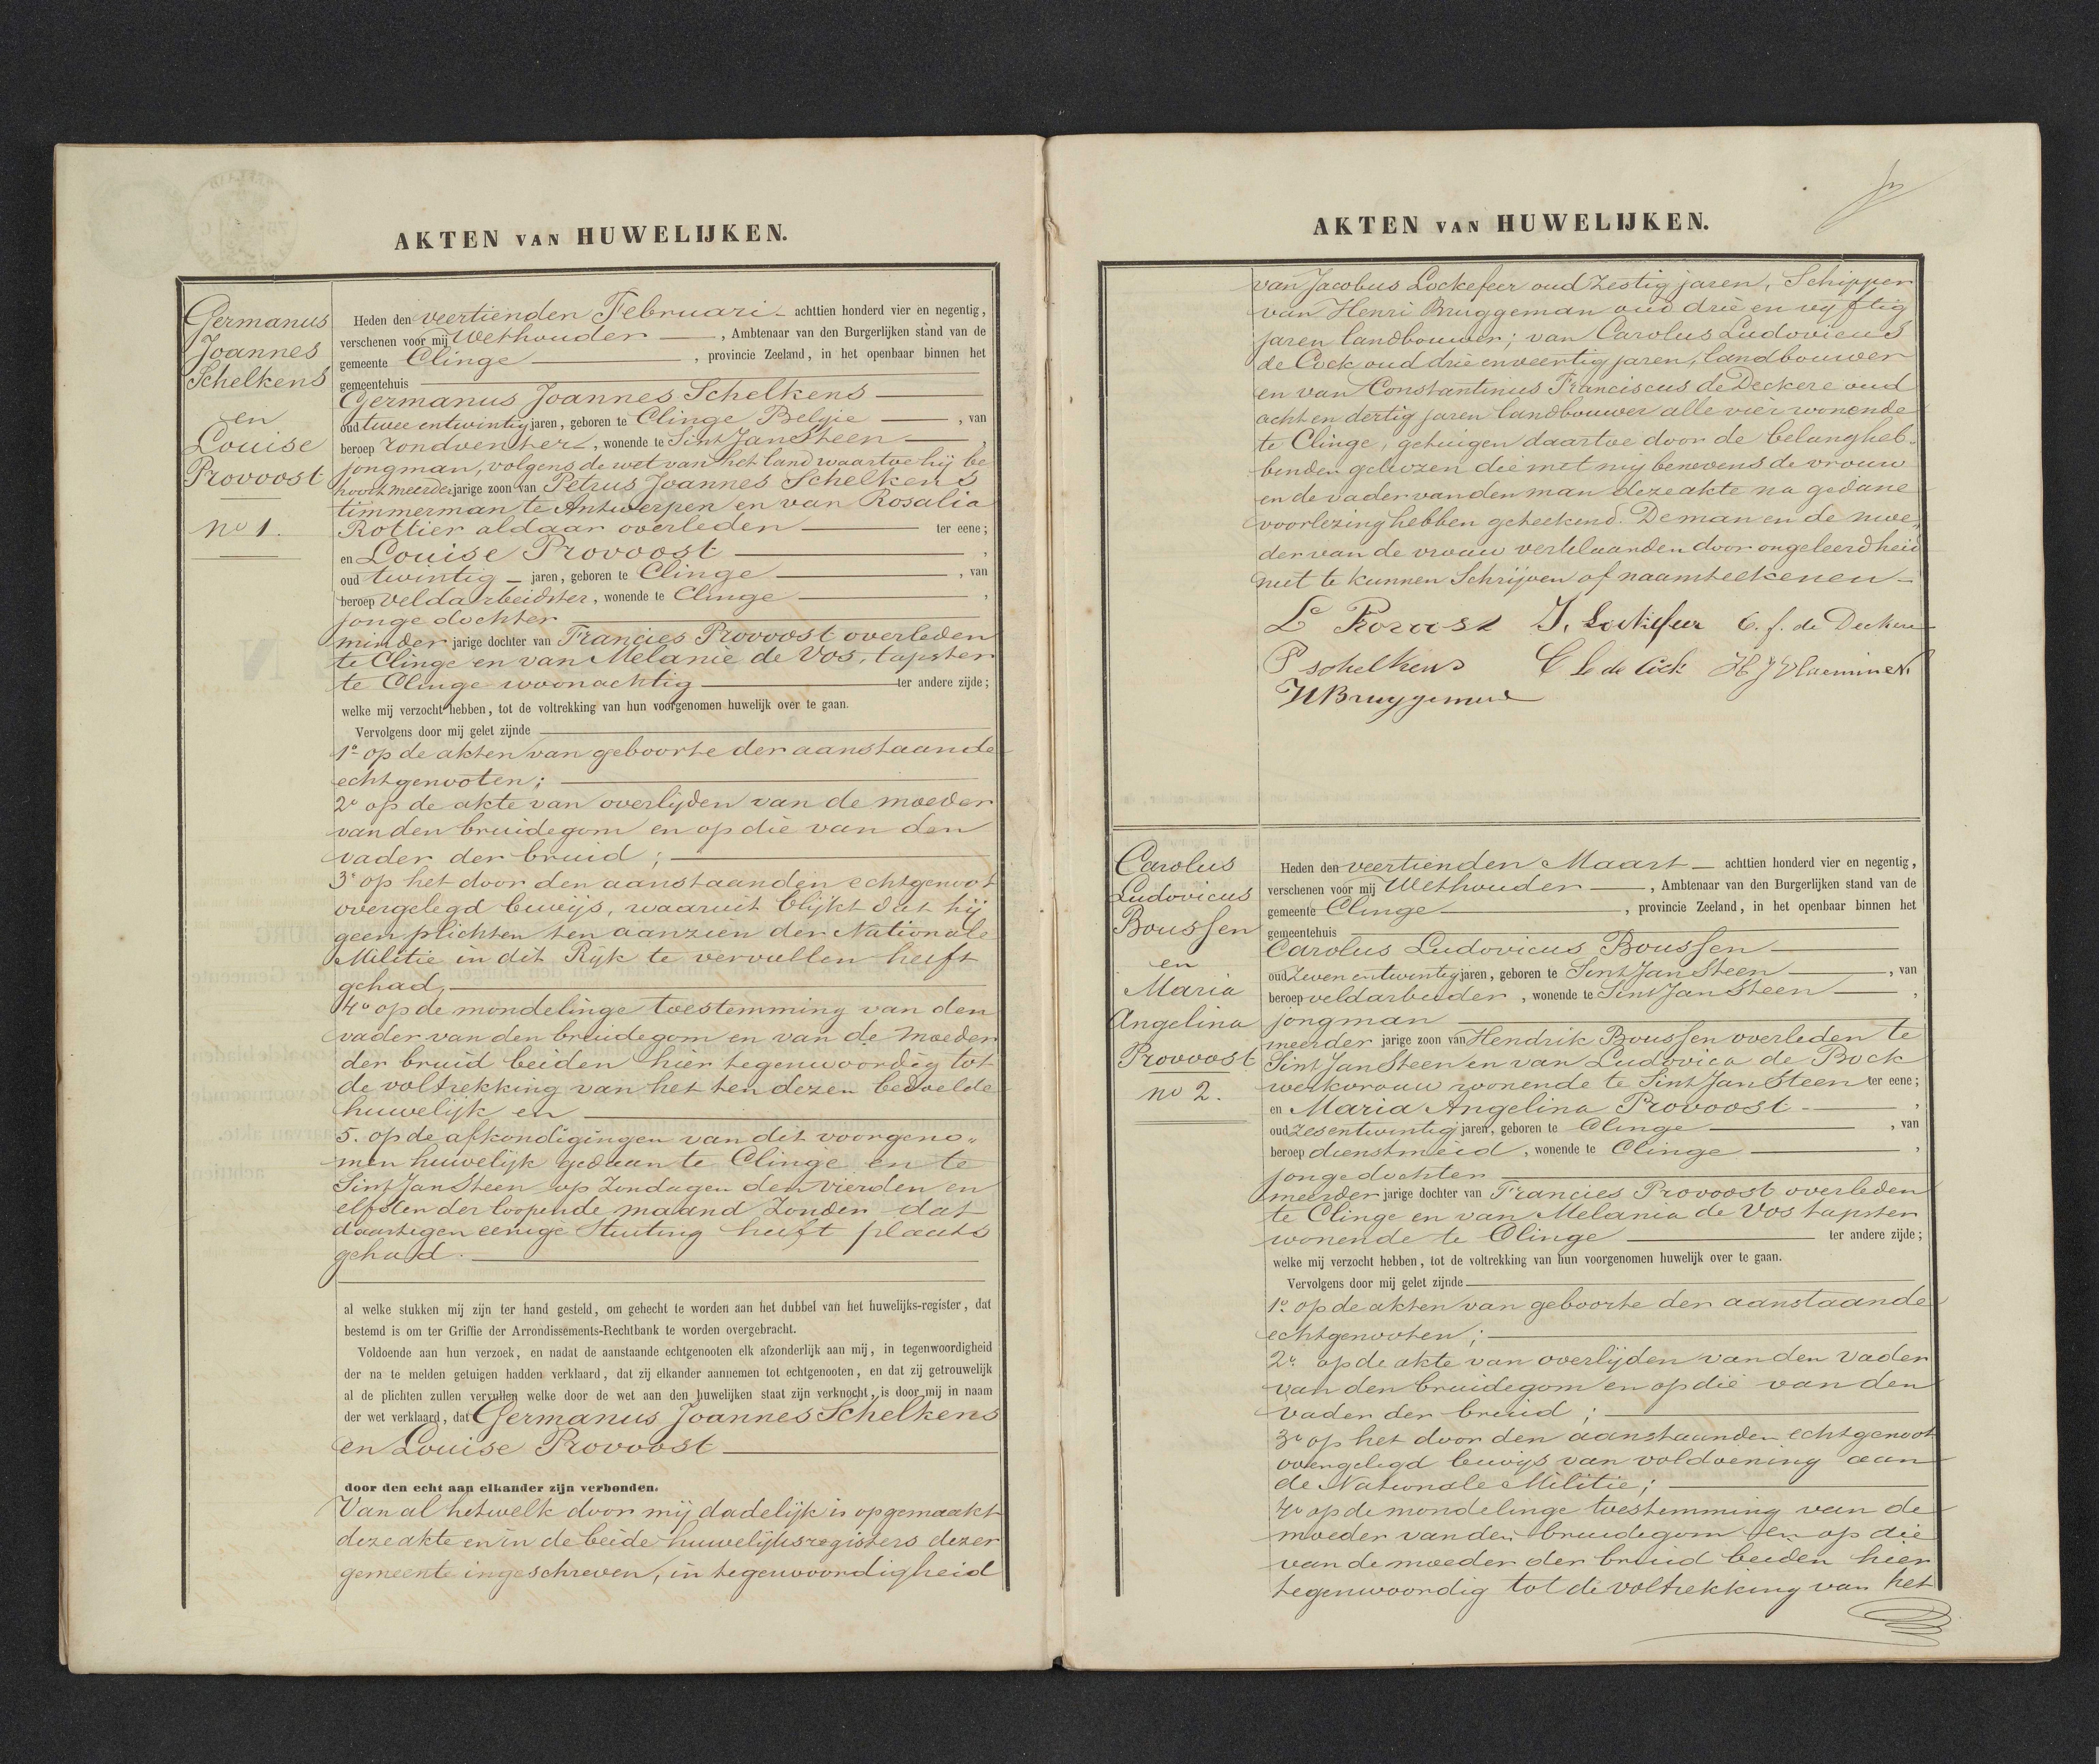 AKTEN VAN HUWELIJKEN.
Germanus
Joannes
Schelkens
en
Louise
Provoost
no 1.
Heden den veertienden Februari achttien honderd vier en negentig,
verschenen voor mij Wethouder, Ambtenaar van den Burgerlijken stand van de
gemeente Clinge, provincie Zeeland, in het openbaar binnen het
gemeentehuis
Germanus Joannes Schelkens
oud twee entwintig jaren, geboren te Clinge Belgie, van
beroep rondventer, wonende te Sint Jan Steen,
jongman, volgens de wet van het land waartoe hij be
hoort meerderjarige zoon van Petrus Joannes Schelkens
timmerman te Antwerpen en van Rosalia
Rottier aldaar overleden ter eene;
en Louise Provoost,
oud twintig jaren, geboren te Clinge, van
beroep veldarbeidster, wonende te Clinge,
jonge dochter
minder jarige dochter van Francies Provoost overleden
te Clinge en van Melanie de Vos, tapster
te Clinge woonachtig ter andere zijde;
welke mij verzocht hebben, tot de voltrekking van hun voorgenomen huwelijk over te gaan.
Vervolgens door mij gelet zijnde
1o op de akten van geboorte der aanstaande
echtgenooten;
2o op de akte van overlijden van de moeder
van den bruidegom en op die van den
vader der bruid;
3o op het door den aanstaanden echtgenoot
overgelegd bewijs, waaruit blijkt dat hij
geen plichten ten aanzien der Nationale
Militie in dit Rijk te vervullen heeft
gehad,
4o op de mondelinge toestemming van den
vader van den bruidegom en van de moeder
der bruid beiden hier tegenwoordig tot
de voltrekking van het ten dezen bedoelde
huwelijk en
5. op de afkondigingen van dit voorgeno„
men huwelijk gedaan te Clinge en te
Sint Jan Steen op Zondagen den vierden en
elfden der loopende maand Zonder dat
daartegen eenige Stuiting heeft plaats
gehad.
al welke stukken mij zijn ter hand gesteld, om gehecht te worden aan het dubbel van het huwelijks-register, dat
bestemd is om ter Griffie der Arrondissements-Rechtbank te worden overgebracht.
Voldoende aan hun verzoek, en nadat de aanstaande echtgenooten elk afzonderlijk aan mij, in tegenwoordigheid
der na te melden getuigen hadden verklaard, dat zij elkander aannemen tot echtgenooten, en dat zij getrouwelijk
al de plichten zullen vervullen welke door de wet aan den huwelijken staat zijn verknocht, is door mij in naam
der wet verklaard, dat Germanus Joannes Schelkens
en Louise Provoost
door den echt aan elkander zijn verbonden.
Van al hetwelk door mij dadelijk is opgemaakt
deze akte en in de beide huwelijksregisters dezer
gemeente ingeschreven, in tegenwoordigheid
AKTEN VAN HUWELIJKEN.
van Jacobus Lockefeer oud Zestig jaren, Schipper
van Henri Bruggeman oud drie en vyftig
jaren landbouwer; van Carolus Ludovicus
de Cock oud drie enveertig jaren, landbouwer
en van Constantinus Franciscus de Deckere oud
acht en dertig jaren landbouwer alle vier wonende
te Clinge, getuigen daartoe door de belangheb„
benden gekozen die met mij benevens de vrouw
en de vader van den man deze akte na gedane
voorlezing hebben geteekend. De man en de moe„
der van de vrouw verklaarden door ongeleerdheid
niet te kunnen Schrijven of naamteekenen
Le Provoost J. Lockefeer C. f. de Deckere
P schelkens C L de Cock H J Vlaeminck
H Bruggeman
Carolus
Ludovicus
Boussen
en
Maria
Angelina
Provoost
no 2.
Heden den veertienden Maart achttien honderd vier en negentig,
verschenen voor mij Wethouder, Ambtenaar van den Burgerlijken stand van de
gemeente Clinge, provincie Zeeland, in het openbaar binnen het
gemeentehuis
Carolus Ludovicus Boussen
oud zeven entwintig jaren, geboren te Sint Jan Steen, van
beroep veldarbeider, wonende te Sint Jan Steen,
jongman
meerder jarige zoon van Hendrik Boussen overleden te
Sint Jan Steen en van Ludovica de Bock
werkvrouw wonende te Sint Jan Steen ter eene;
en Maria Angelina Provoost,
oud zesentwintig jaren, geboren te Clinge, van
beroep dienstmeid, wonende te Clinge,
jongedochter
meerder jarige dochter van Francies Provoost overleden
te Clinge en van Melania de Vos tapster
wonende te Clinge ter andere zijde;
welke mij verzocht hebben, tot de voltrekking van hun voorgenomen huwelijk over te gaan.
Vervolgens door mij gelet zijnde
1o op de akten van geboorte der aanstaande
echtgenooten;
2o op de akte van overlijden van den vader
van den bruidegom en op die van den
vader der bruid;
3o op het door den aanstaanden echtgenoot
overgelegd bewijs van voldoening aan
de Nationale Militie;
4o op de mondelinge toestemming van de
moeder van den bruidegom en op die
van de moeder der bruid beiden hier
tegenwoordig tot de voltrekking van het